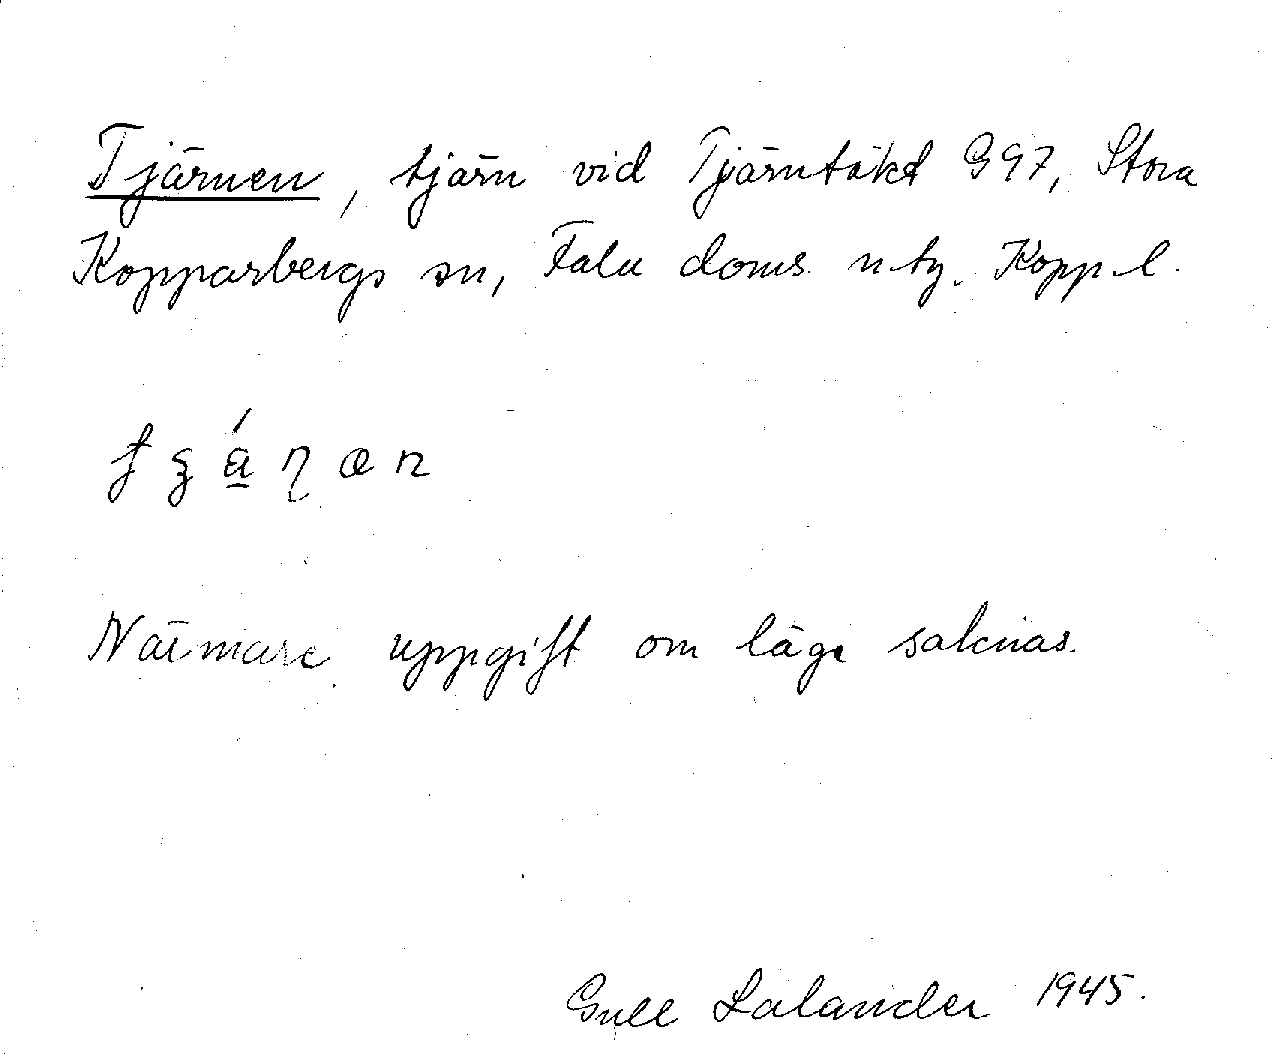 Tjärnen, tjärn vid Tjärntäkt 997, Stora
Kopparbergs sn, Falu doms. n. tg. Kopp. l.
Närmare uppgift om läge saknas.
Gull Lalander 1945.